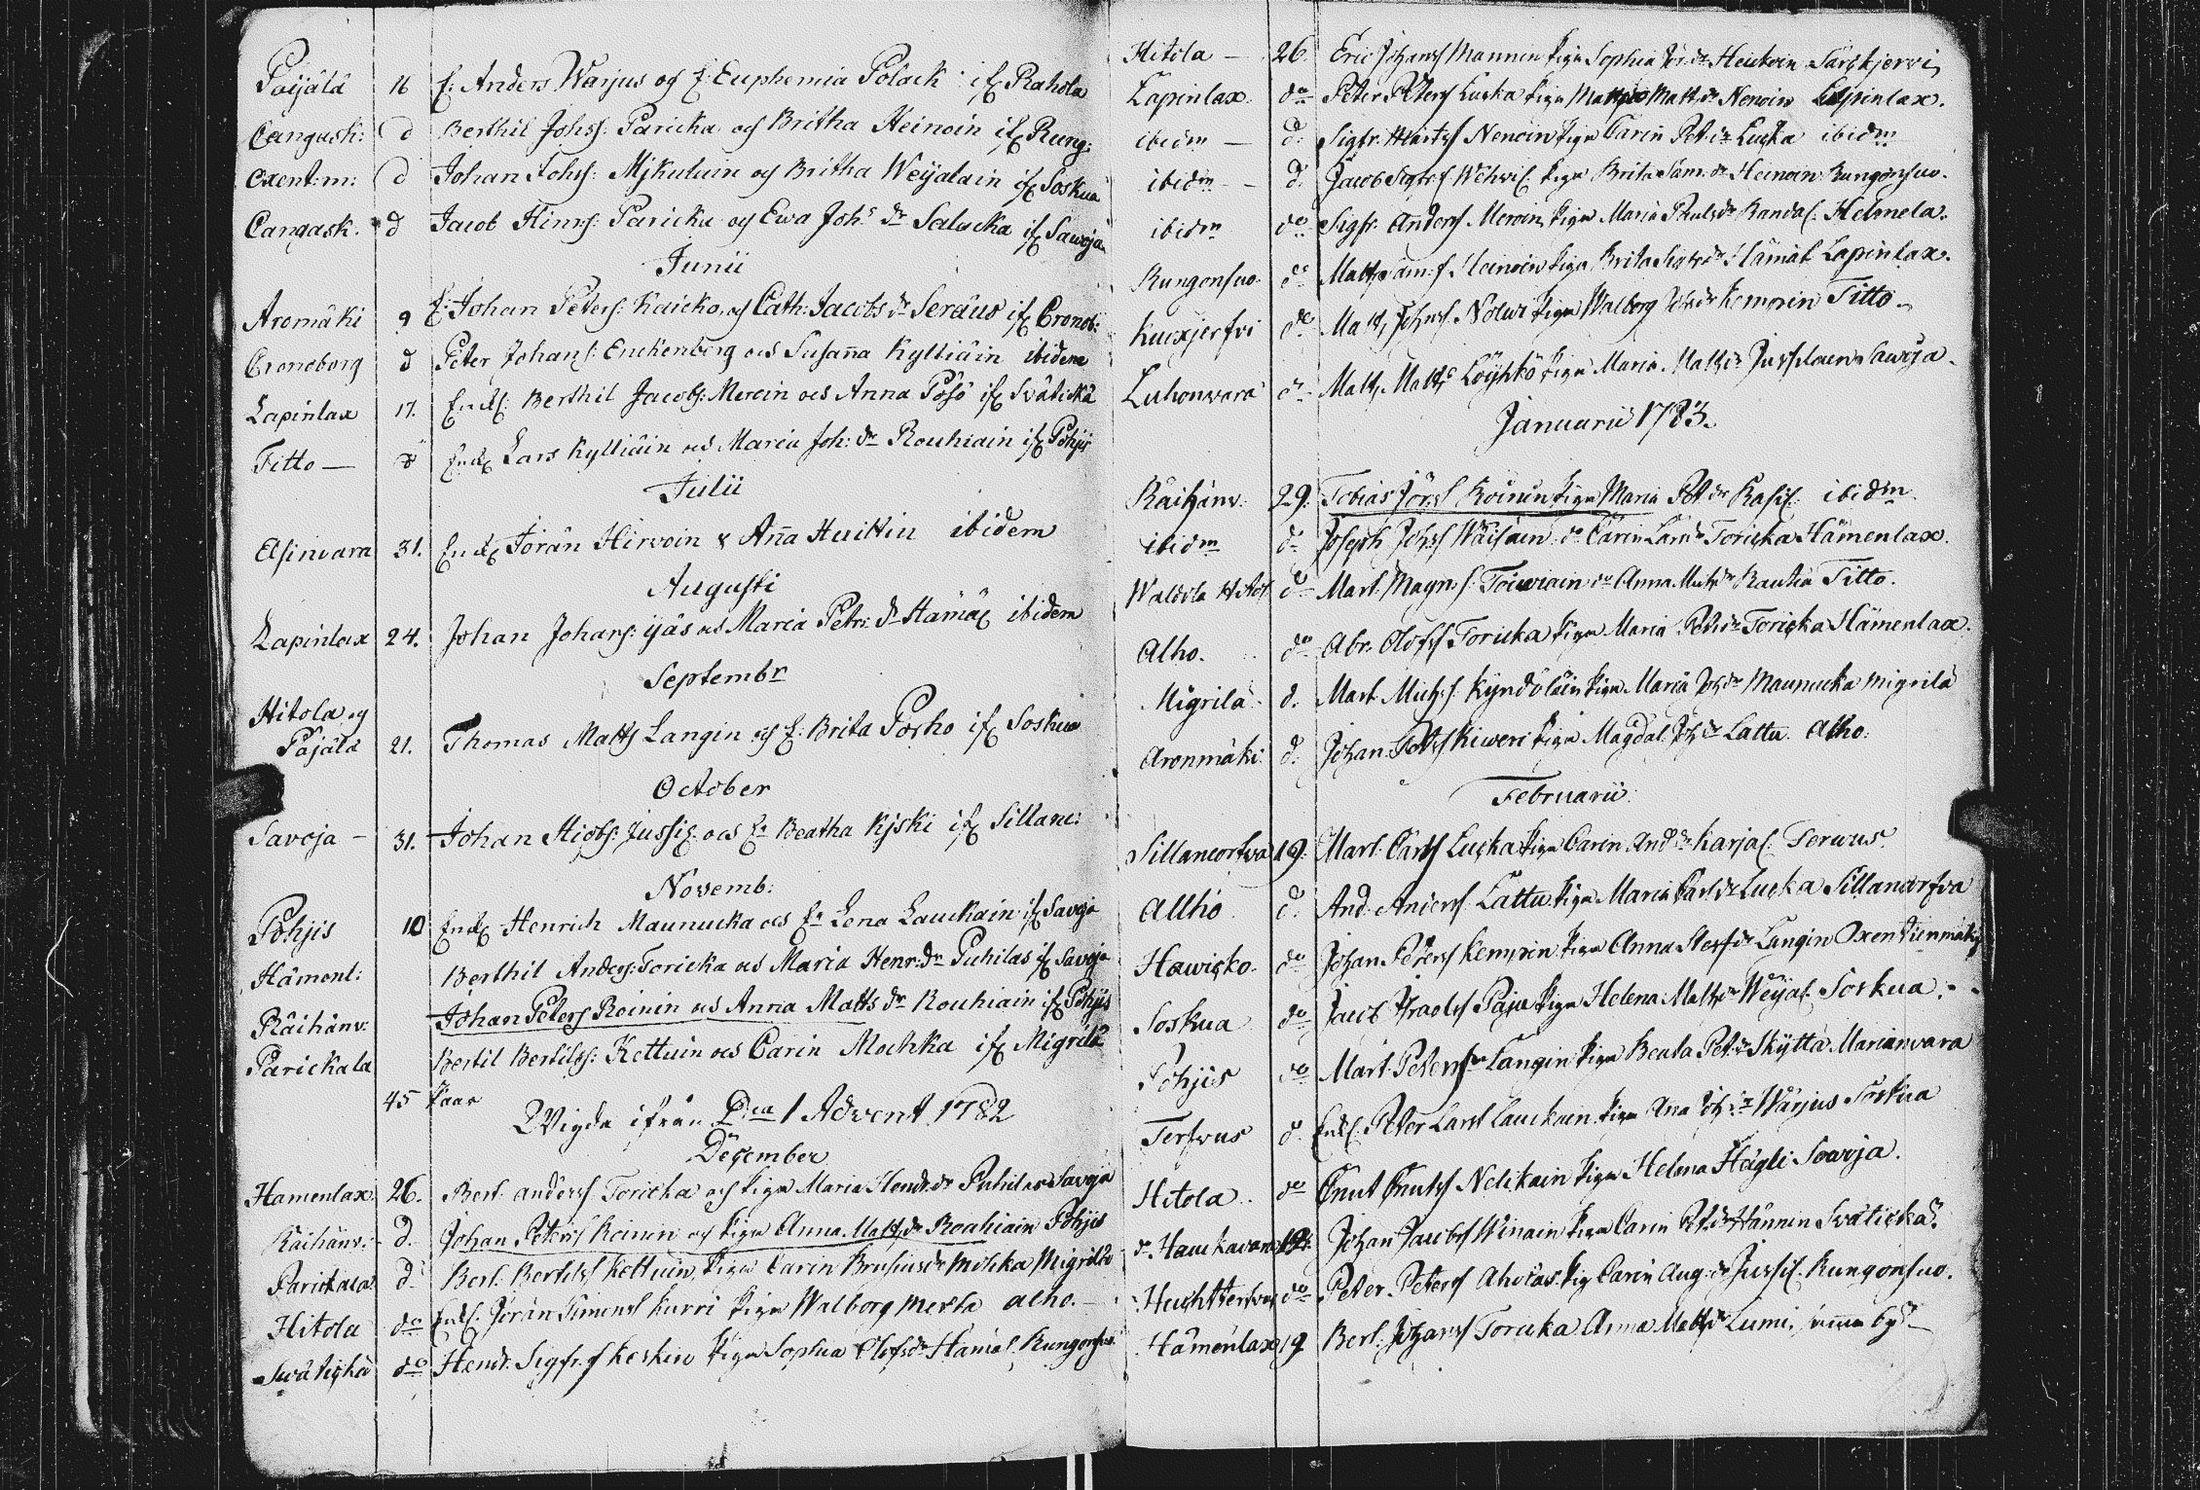 Poijälä 16 E: Anders Warjus og E: Euphemia Polack ifr. Rahola
Cangask: d Berthil Johss: Paricka och Britha Heinoin ifr. Rung:
Oxent:m: d Johan Johss: Mjkuluin och Britha Weijalain ifr. Soskua
Cangask. d Jacob Hinrs: Paricka och Ewa Johs dr Salacka ifr. Savoja
Junii
Aromäki 9 E: Johan Peters: Kaicko, och Cath: Jacobs dr Seräus ifr. Cronob:
Croneborg d Peter Johans: Enckenberg och Susanna Kylliäin ibidem
Lapinlax 17. Enkl: Berthil Jacobs: Meroin och Anna Pösö ifr. Svätickä
Titto — d Enkl: Lars Kylliäin och Maria Joh: dr Rouhiain ifr. Pohjis
Julii
Elsinvara 31. Enkl: Jörän Hirvoin & Anna Huittin ibidem
Augusti
Lapinlax 24. Johan Johans: ijäs och Maria Petr: dr Hämäl ibidem
Septembr
Hitola og
Päjälä 21. Thomas Matts Langin och E: Brita Porho ifr. Soskua
October
Savoja — 31. Johan Hiobs: Jussil: och Ea Beatha Kjski ifr. Sillanc:
Novemb:
Pohjis 10 Enkl: Henrich Maunucka och Ea Lena Lauckain ifr. Savoja
Hämenl: Berthil Anders: Toricka och Maria Henr: dr Puhilas ifr. Savoja
Räihänv: Johan Peters Roinin och Anna Matts dr Rouhiain ifr. Pohjis
Parickala Bertil Bertilss: Kettuin och Carin Mochka ifr. Migrilä
45 Paar
Wigda ifrån Dca 1 Advent 1782
December
Hamenlax 26. Bert. Anderss Toricka och Pigan Maria Hendr. dr Puhilas Savoja
Räihänv: d. Johan Peterss Roinin och Pigan Anna Matts dr Rouhiain Pohjis
Parickala d. Bert. Bertilss Kettuin, Pigan Carin dr Mohka Migrilä
Hitola do Enkl. Jörän Simonss Kurri Pigan Walborg Merta Alho. —
Swätickä do Hendr. Sigfr. s Keskin Pigan Sophia Olofsdr Hämäl. Rungonsuo
Hitola — 26. Eric Johanss Mannin Pigan Sophia dr Heickoin Särkjervi
Lapinlax. do Peter Peterss Lucka Pigan Matts dr Nenoin Lapinlax.
ibidm — d. Sigfr. Nenoin Pigan Carin Pet. dr Lucka ibidm
ibidm — d. Jacob Sigfrs Wehvil: Pigan Brita Sam. dr Heinoin Rungonsuo.
ibidm do Sigfr. Anderss Meroin, Pigan Maria Pauls dr Randal: Helmela.
Rungonsuo. do Matts Sam: s Heinoin Pigan Brita Sigfr. dr Hämäl. Lapinlax.
Kuoxjerfvi do Matts Johss Nolwi Pigan Walborg Joh. dr Kemppin Titto.
Luhonvara do Matts Matts Löyhkö Pigan Maria Matts dr Savoja.
Januarii 1783.
Räihänv: 29. Tobias Jörss Roinin Pigan Maria Pet dr Rasil: ibidm
ibidm d. Joseph Johss Wäisäin do Carin Lars dr Toricka Hämenlax.
Waldola do Mart. Magn. s: Toiviain do Anna Math dr Rautia Titto.
Alho. do Abr. Olofss Toricka Pigan Maria Pet. dr Toricka Hämenlax.
Migrilä d. Mart. Michs: Kyndöläin Pigan Maria Joh dr Maunucka Migrilä
Aronmäki d. Johan Peterss Kiweri Pigan Magdal. Joh dr Lattu. Alho.
Februarii.
Sillancorfva 19. Mart. Carlss Lucka Pigan Carin And dr Karjal: Terwus.
Allho d. And. Anderss Lattu Pigan Maria Carls dr Lucka Sillancorfva
Hawicko. do Johan Peterss Kemppin Pigan Anna Steff dr Langin Oxentienmäki
Soskua do Jacob Israelss Paju Pigan Helena Matts dr Weijal. Soskua.
Pohjis do Mart. Peterss Langin Pigan Beata Pet dr Skyttä Marianvara
Terfwus d. Enkl. Peter Larss Lauckain Pigan Ana Joh dr Wärjus Soskua
Hitola. do Cnut Cnutss Nelikain Pigan Helena Hägli Savoja.
Hauckavara 19. Johan Jacobss Winain Pigan Carin Pet. dr Hännin Svätickä.
Huchtterwus do Peter Peterss Aholas. Pig Carin Aug: dr Jussil: Rungonsuo.
Hämenlax 19 Bert. Johanss Toricka Anna Matts dr Lumi, samma by.